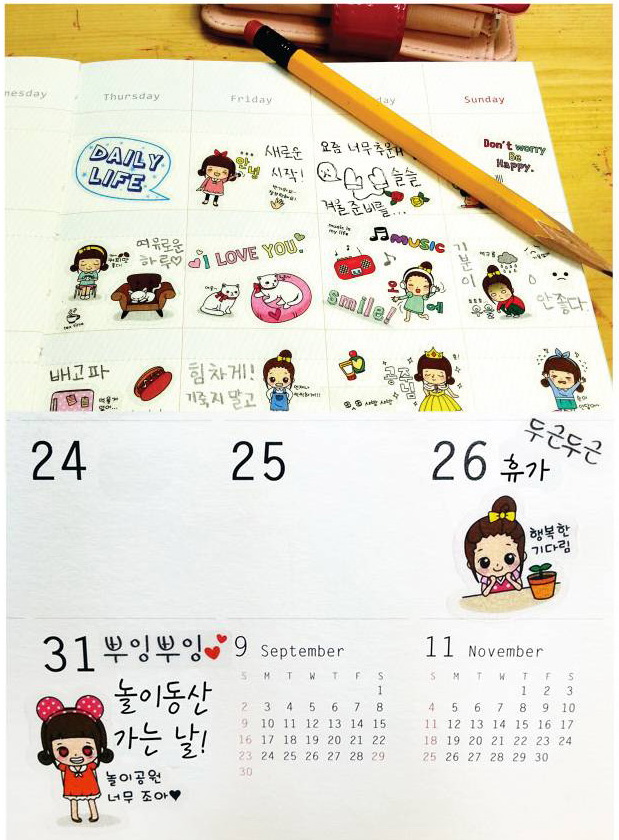 Thursday
Friday
Sunday
DAILY
LIFE
안녕
새로운
시작!
요즘 너무
슬슬
겨울준비를...
Don't worry
Be
Happy.
여유로운
하루♡
tea time
I LOVE YOU.
music is
my life
MUSIC
오 에
smile!
기
분
이
우울
안좋다.
배고파
힘차게!
기죽지말고
공주님
24
25
26
두근두근
휴가
행복한
기다림
31 뿌잉뿌잉
놀이동산
가는 날!
놀이공원
너무 조아♥
9 September
S M T W T F S
1
2 3 4 5 6 7 8
9 10 11 12 13 14 15
16 17 18 19 20 21 22
23 24 25 26 27 28 29
30
11 November
S M T W T F S
1 2 3
4 5 6 7 8 9 10
11 12 13 14 15 16 17
18 19 20 21 22 23 24
25 26 27 28 29 30